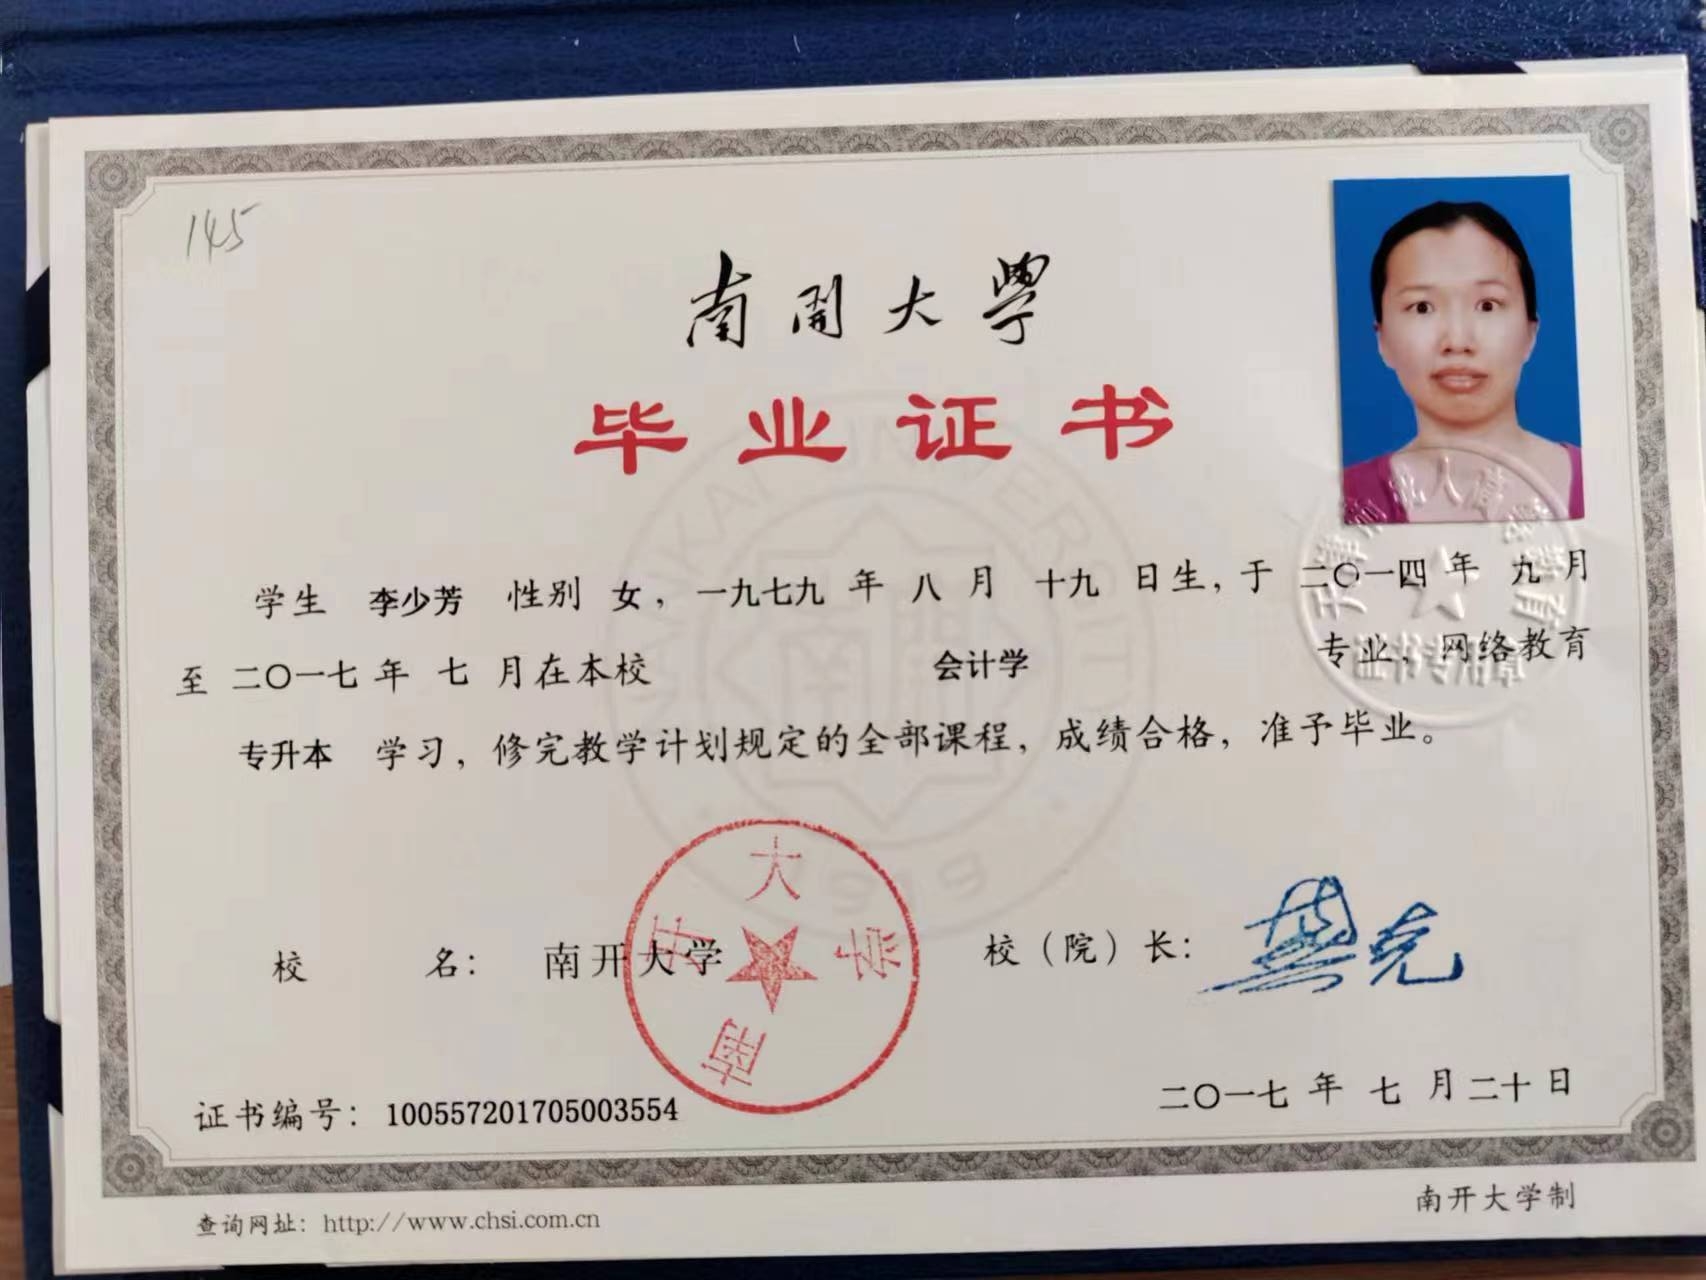 145
南開大學
毕业证书
学生 李少芳 性别 女，一九七九 年 八 月 十九 日生，于 二〇一四 年 九 月
至 二〇一七 年 七 月在本校 会计学 专业，网络教育
专升本 学习，修完教学计划规定的全部课程，成绩合格，准予毕业。
南开大学
校 名：南开大学 校（院）长：龚克
证书编号：100557201705003554 二〇一七 年 七 月 二十 日
查询网址：http://www.chsi.com.cn 南开大学制